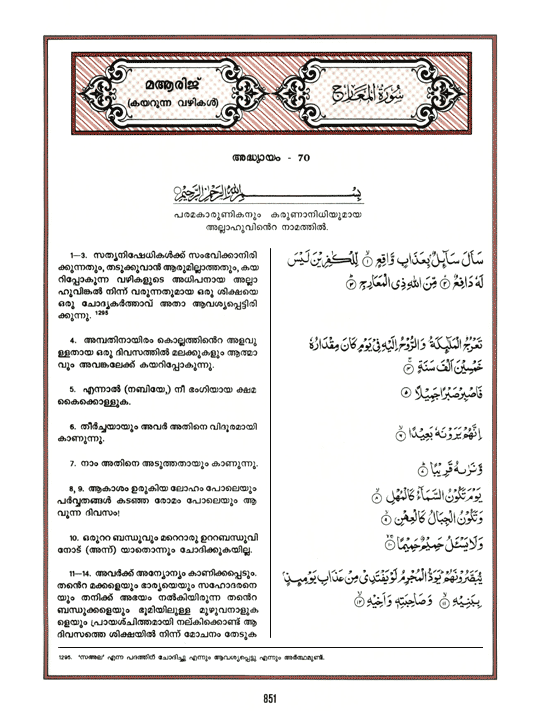 മആരിജ്
(കയറുന്ന വഴികൾ)
سُورَةُ المَعَارِجِ
അദ്ധ്യായം - 70
بِسْمِ اللهِ الرَّحْمٰنِ الرَّحِيْمِ
പരമകാരുണികനും കരുണാനിധിയുമായ
അല്ലാഹുവിൻെറ നാമത്തിൽ.
1—3. സത്യനിഷേധികൾക്ക് സംഭവിക്കാനിരി
ക്കുന്നതും, തടുക്കുവാൻ ആരുമില്ലാത്തതും, കയ
റിപ്പോകുന്ന വഴികളുടെ അധിപനായ അല്ലാ
ഹുവിങ്കൽ നിന്ന് വരുന്നതുമായ ഒരു ശിക്ഷയെ
ഒരു ചോദ്യകർത്താവ് അതാ ആവശ്യപ്പെട്ടിരി
ക്കുന്നു. 1295
4. അമ്പതിനായിരം കൊല്ലത്തിൻെറ അളവു
ള്ളതായ ഒരു ദിവസത്തിൽ മലക്കുകളും ആത്മാ
വും അവങ്കലേക്ക് കയറിപ്പോകുന്നു.
5. എന്നാൽ (നബിയേ,) നീ ഭംഗിയായ ക്ഷമ
കൈക്കൊള്ളുക.
6. തീർച്ചയായും അവർ അതിനെ വിദൂരമായി
കാണുന്നു.
7. നാം അതിനെ അടുത്തതായും കാണുന്നു.
8, 9. ആകാശം ഉരുകിയ ലോഹം പോലെയും
പർവ്വതങ്ങൾ കടഞ്ഞ രോമം പോലെയും ആ
വുന്ന ദിവസം!
10. ഒരുററ ബന്ധുവും മറെറാരു ഉററബന്ധുവി
നോട് (അന്ന്) യാതൊന്നും ചോദിക്കുകയില്ല.
11—14. അവർക്ക് അന്യോന്യം കാണിക്കപ്പെടും.
തൻെറ മക്കളെയും ഭാര്യയെയും സഹോദരനെ
യും തനിക്ക് അഭയം നൽകിയിരുന്ന തൻെറ
ബന്ധുക്കളെയും ഭൂമിയിലുള്ള മുഴുവനാളുക
ളെയും പ്രായശ്ചിത്തമായി നല്കികൊണ്ട് ആ
ദിവസത്തെ ശിക്ഷയിൽ നിന്ന് മോചനം തേടുക
سَأَلَ سَآئِلٌۢ بِعَذَابٍ وَّاقِعٍ ۝١ لِّلْكٰفِرِيْنَ لَيْسَ
لَهٗ دَافِعٌ ۝٢ مِّنَ اللهِ ذِى الْمَعَارِجِ ۝٣
تَعْرُجُ الْمَلٰٓئِكَةُ وَالرُّوْحُ اِلَيْهِ فِيْ يَوْمٍ كَانَ مِقْدَارُهٗ
خَمْسِيْنَ اَلْفَ سَنَةٍ ۝٤
فَاصْبِرْ صَبْرًا جَمِيْلًا ۝٥
اِنَّهُمْ يَرَوْنَهٗ بَعِيْدًا ۝٦
وَّنَرٰىهُ قَرِيْبًا ۝٧
يَوْمَ تَكُوْنُ السَّمَآءُ كَالْمُهْلِ ۝٨
وَتَكُوْنُ الْجِبَالُ كَالْعِهْنِ ۝٩
وَلَا يَسْـَٔلُ حَمِيْمٌ حَمِيْمًا ۝١٠
يُّبَصَّرُوْنَهُمْ يَوَدُّ الْمُجْرِمُ لَوْ يَفْتَدِيْ مِنْ عَذَابِ يَوْمِئِذٍۢ
بِبَنِيْهِ ۝١١ وَصَاحِبَتِهٖ وَاَخِيْهِ ۝١٢
1295. 'സഅല' എന്ന പദത്തിന് ചോദിച്ചു എന്നും ആവശ്യപ്പെട്ടു എന്നും അർത്ഥമുണ്ട്.
851